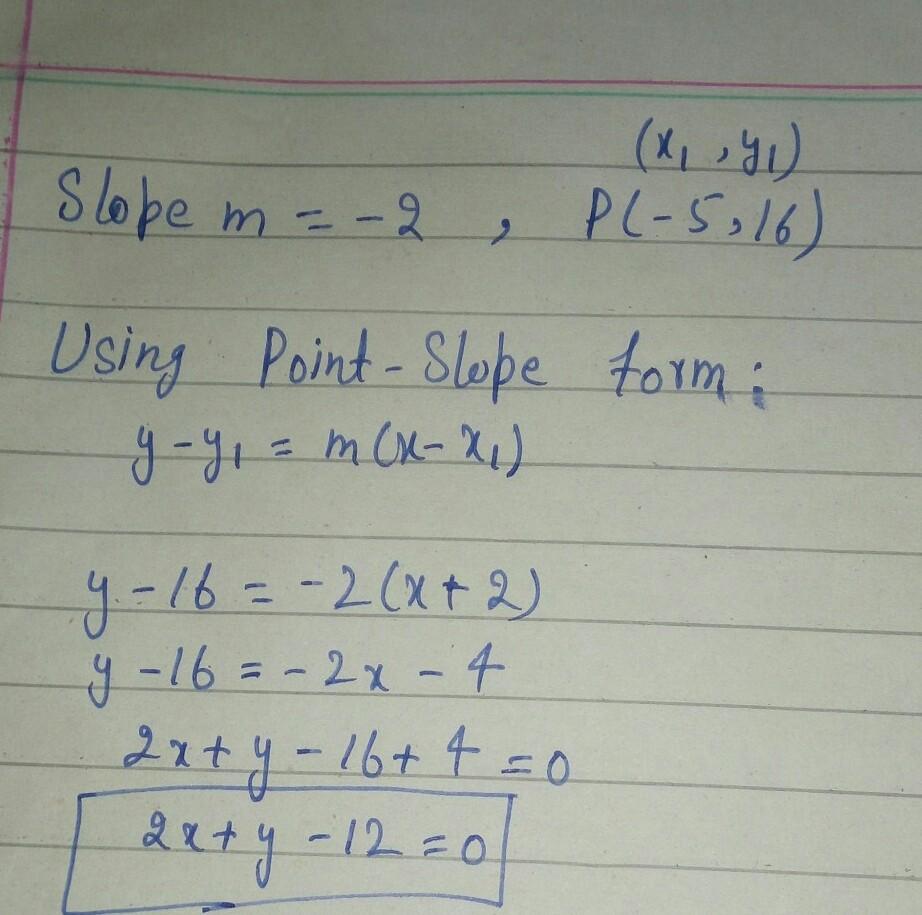 (x₁, y₁)
Slope m = -2 , P(-5, 16)
Using Point-Slope form:
y - y₁ = m(x - x₁)
y - 16 = -2(x + 2)
y - 16 = -2x - 4
2x + y - 16 + 4 = 0
2x + y - 12 = 0